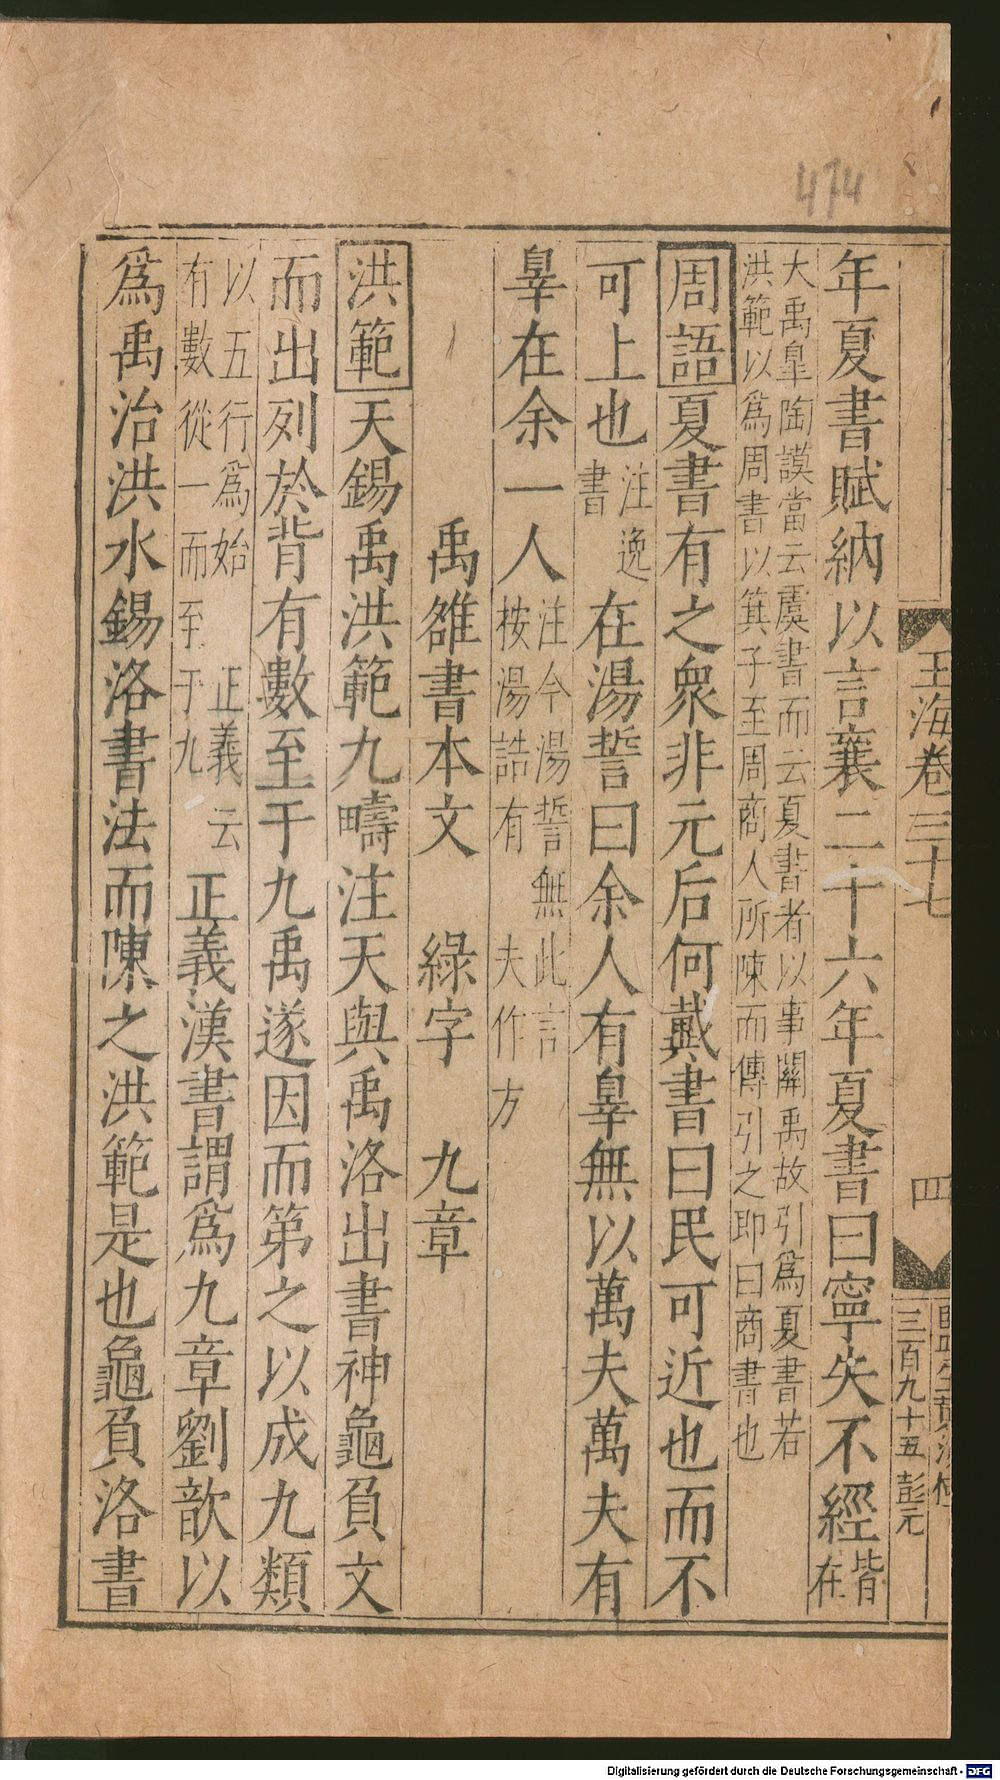 474
玉海卷三十七
四
三百九十五 彭元
年夏書賦納以言襄二十六年夏書曰寧失不經皆在
大禹臯陶謨當云虞書而云夏書者以事關禹故引爲夏書若
洪範以爲周書以箕子至周商人所陳而傳引之即曰商書也
周語夏書有之衆非元后何戴書曰民可近也而不
可上也注逸書在湯誓曰余人有辠無以萬夫萬夫有
辠在余一人注今湯誓無此言按湯誥有夫作方
禹雒書本文 綠字 九章
洪範天錫禹洪範九疇注天與禹洛出書神龜負文
而出列於背有數至于九禹遂因而第之以成九類
以五行爲始正義云有數從一而至于九正義漢書謂爲九章劉歆以
爲禹治洪水錫洛書法而陳之洪範是也龜負洛書
Digitalisierung gefördert durch die Deutsche Forschungsgemeinschaft - DFG